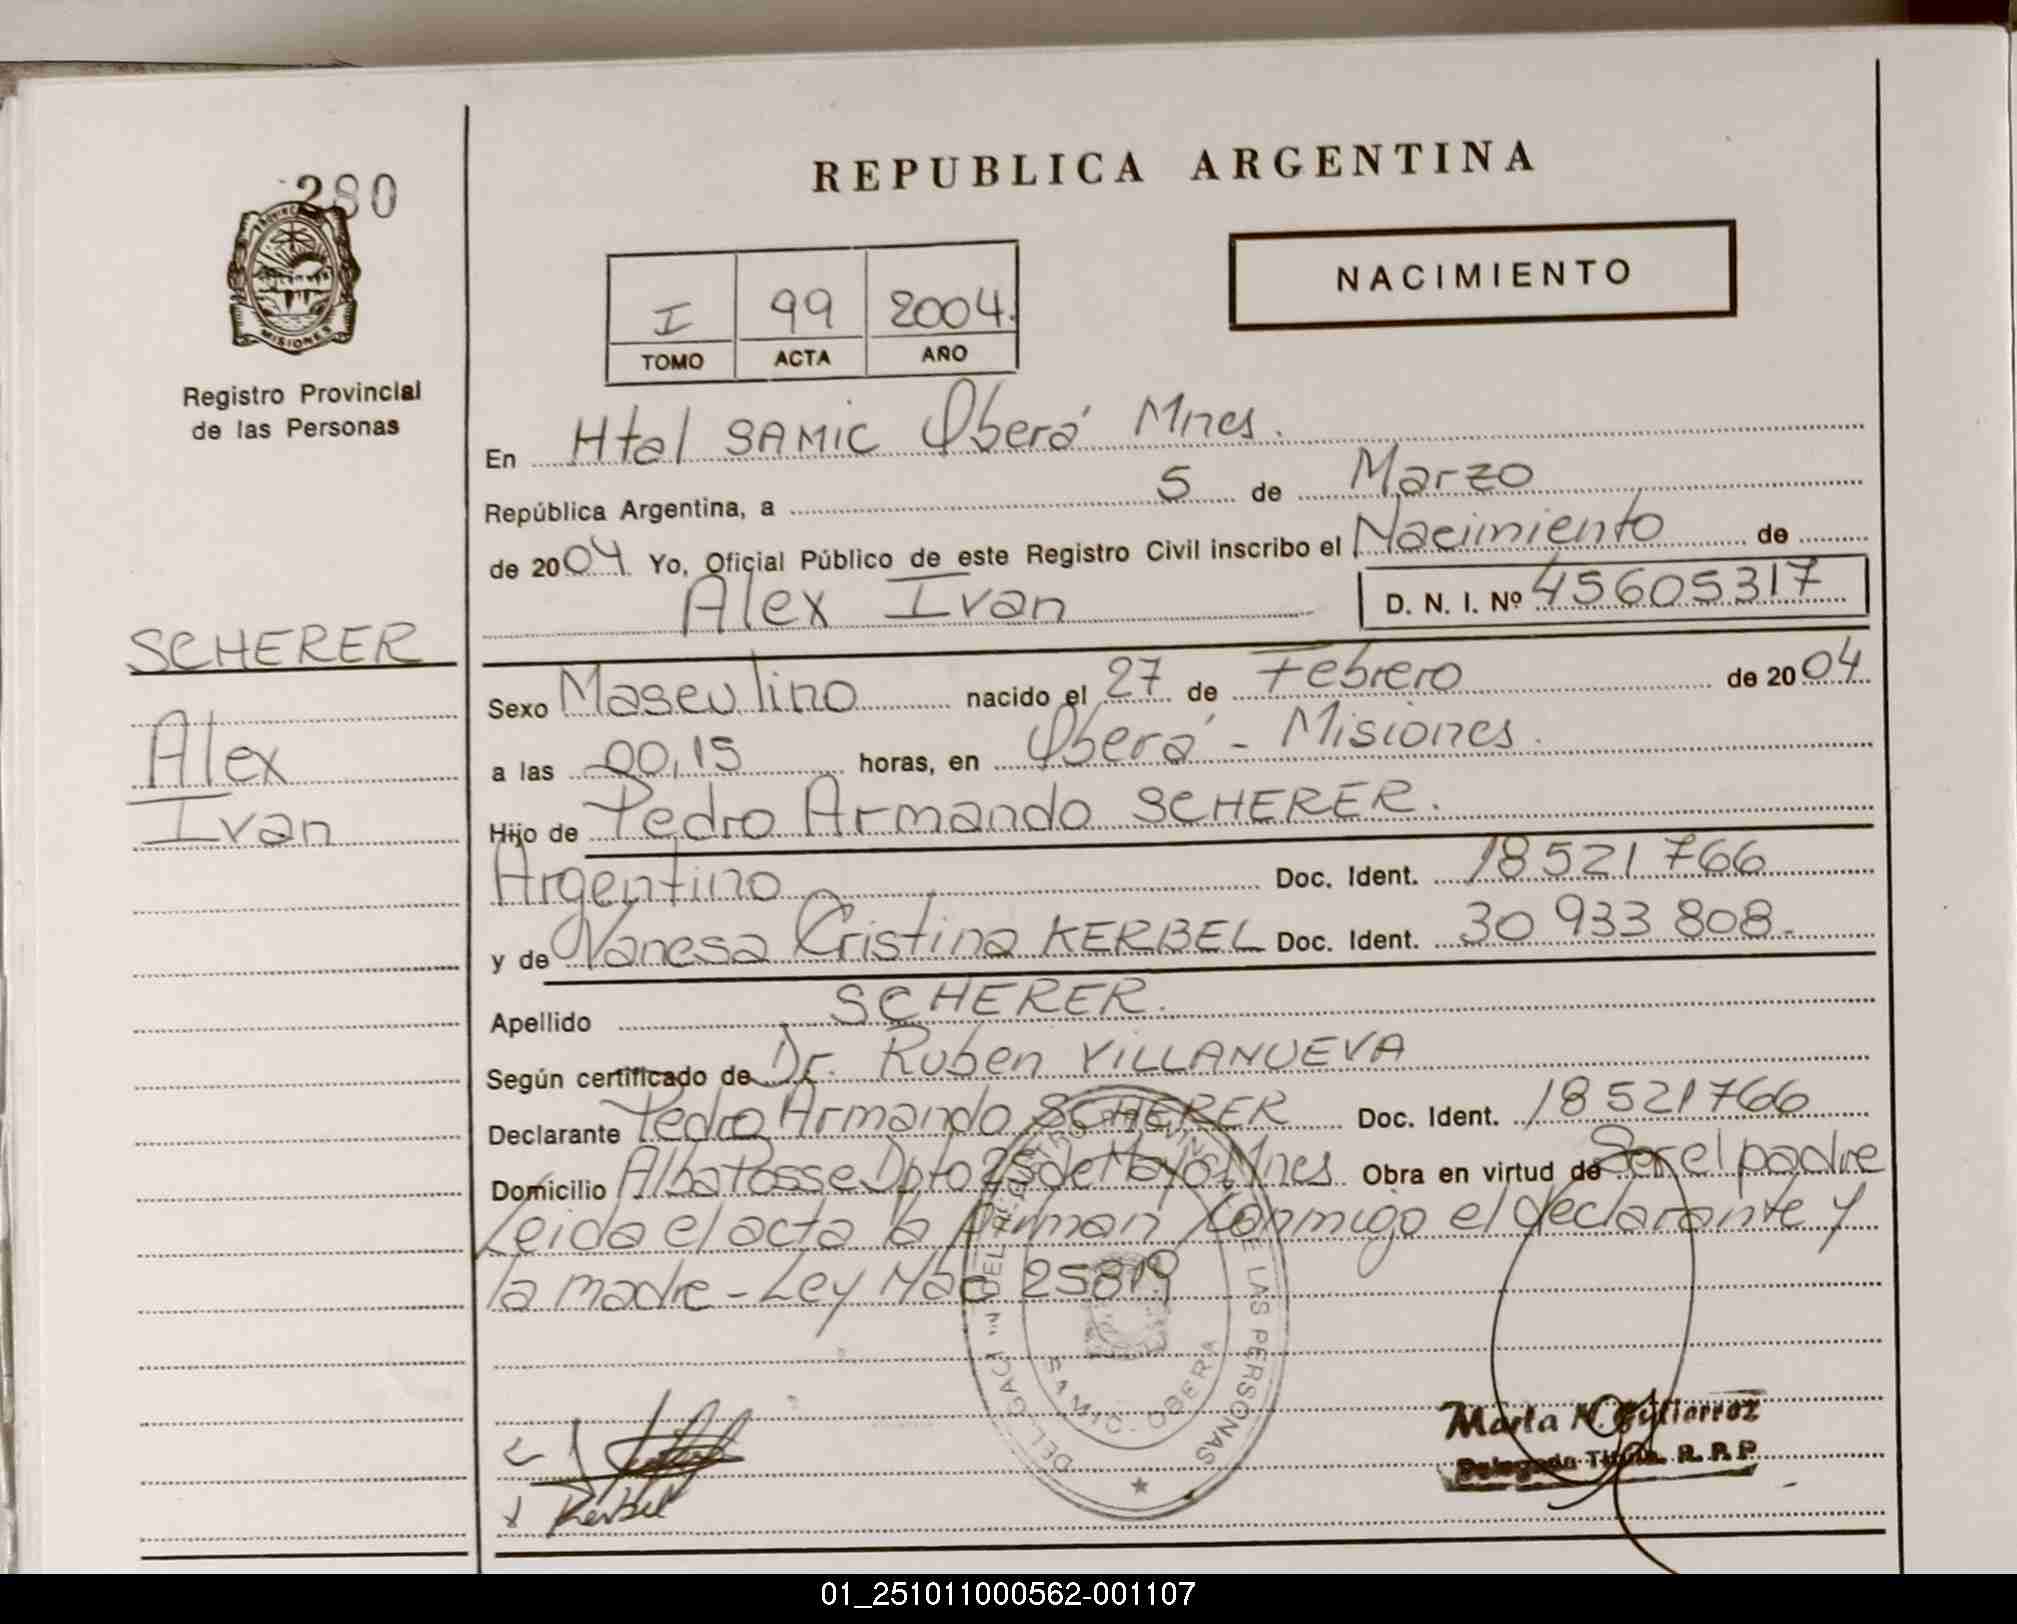 280
PROVINCIA
MISIONES
Registro Provincial
de las Personas
SCHERER
Alex
Ivan
REPUBLICA ARGENTINA
NACIMIENTO
I 99 2004.
TOMO ACTA AÑO
En Htal SAMIC Oberá Mnes.
República Argentina, a 5 de Marzo
de 2004 Yo, Oficial Público de este Registro Civil inscribo el Nacimiento de
Alex Ivan D. N. I. Nº 45605317
Sexo Masculino nacido el 27 de Febrero de 2004
a las 00,15 horas, en Oberá - Misiones.
Hijo de Pedro Armando SCHERER.
Argentino Doc. Ident. 18521766
y de Vanesa Cristina KERBEL Doc. Ident. 30 933 808.
Apellido SCHERER.
Según certificado de Dr. Ruben VILLANUEVA
Declarante Pedro Armando SCHERER Doc. Ident. 18521766
Domicilio Alba Posse Dpto 25 de Mayo Mnes Obra en virtud de Ser el padre
Leida el acta la firman conmigo el declarante y
la madre - Ley Nac 25819
DE LAS PERSONAS
OBERA
Kerbel
Marta N. Gutierrez
Delegada Titular R. P. P.
01_251011000562-001107